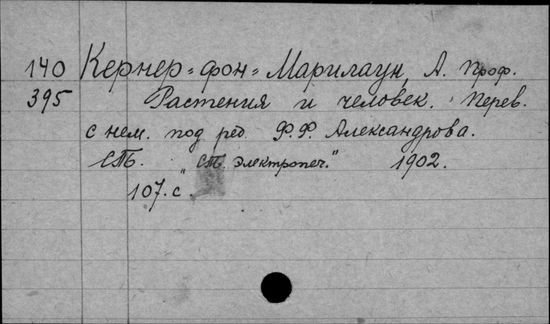 140 Кернер-фон-Марилаун, А. проф.
395 Растения и человек. Перев.
с нем. под ред. Ф.Ф. Александрова.
СПб. "СПб. электропеч." 1902.
107. с.